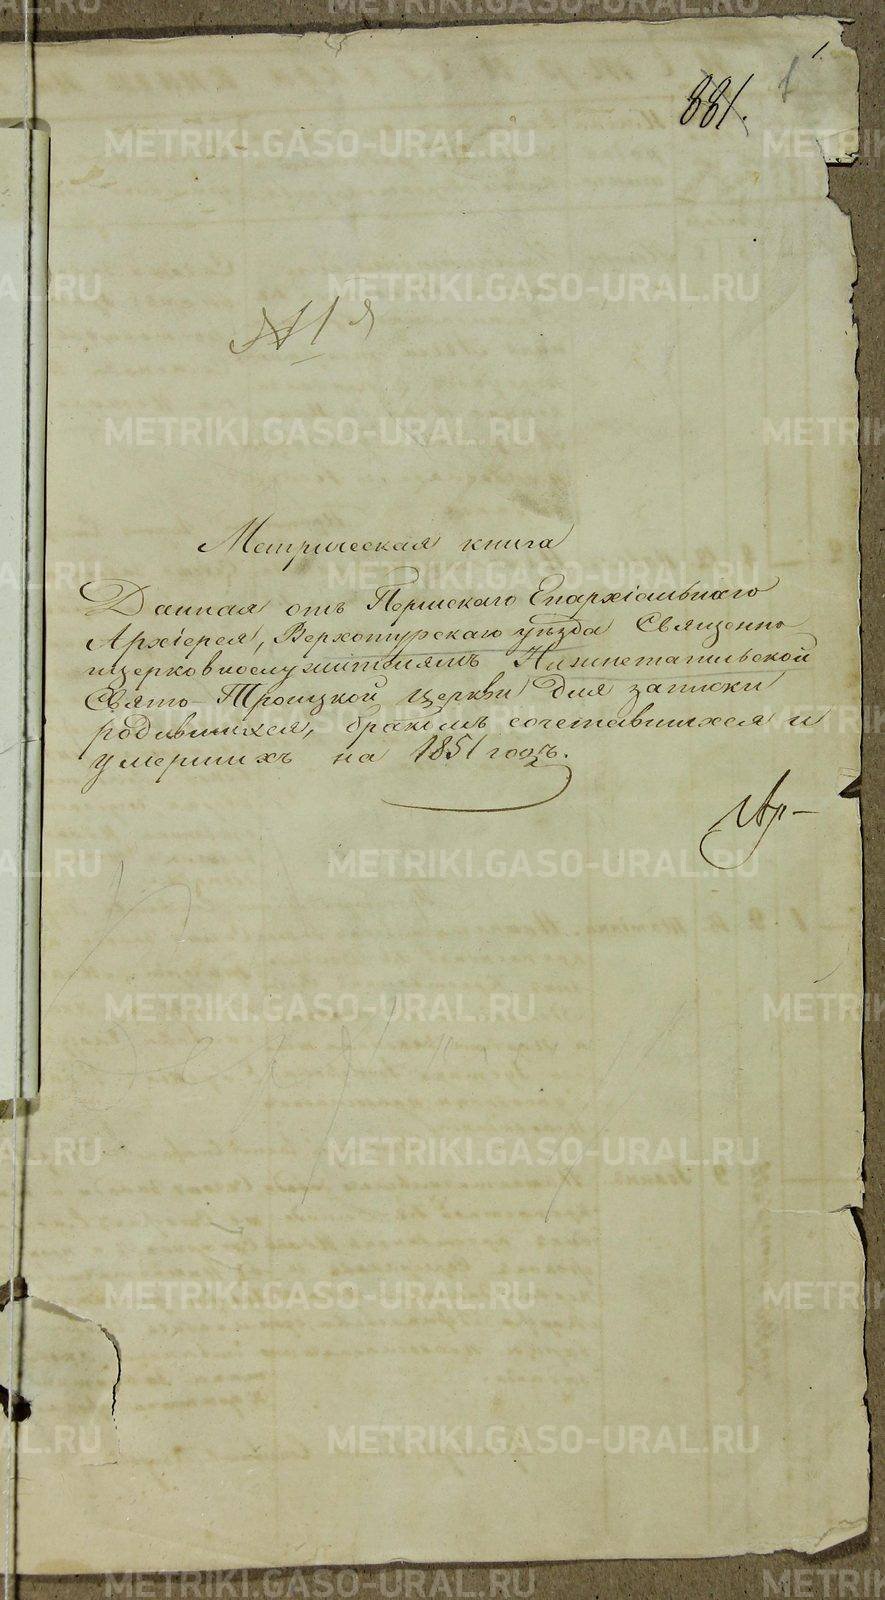 1.
881. 1
№ 1й
Метрическая книга
Данная отъ Пермскаго Епархіальнаго
Архіерея, Верхотурскаго уѣзда Священно
ицерковнослужителямъ Нижнетагильской
Свято-Троицкой церкви для записки
родившихся, бракомъ сочетавшихся и
умершихъ на 1851 годъ.
METRIKI.GASO-URAL.RU